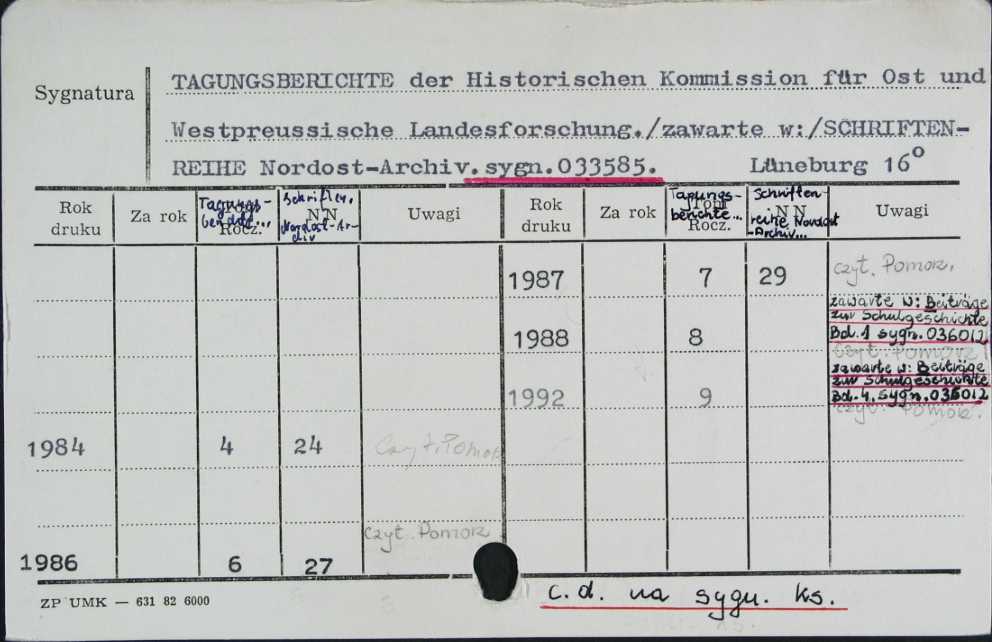 Sygnatura
TAGUNGSBERICHTE der Historischen Kommission für Ost und
Westpreussische Landesforschung./zawarte w:/SCHRIFTEN-
REIHE Nordost-Archiv. sygn.033585. Lüneburg 16°
Rok druku Za rok Tagungs- Rocz. Schriften. NN Nordost-Ar-chiv Uwagi
Rok druku Za rok Tagungs-berichte... Tom Rocz. Schriften-reihe NN Nordost-Archiv... Uwagi
1987 7 29 czyt. Pomorz.
zawarte w: Beiträge
zur Schulgeschichte
1988 8 Bd.1 sygn.036012
czyt. Pomorz.
zawarte w: Beiträge
zur Schulgeschichte
1992 9 Bd.4. sygn.036012
czyt. Pomorz.
1984 4 24 Czyt. Pomorz
czyt. Pomorz
1986 6 27
ZP UMK — 631 82 6000
c.d. na sygn. ks.